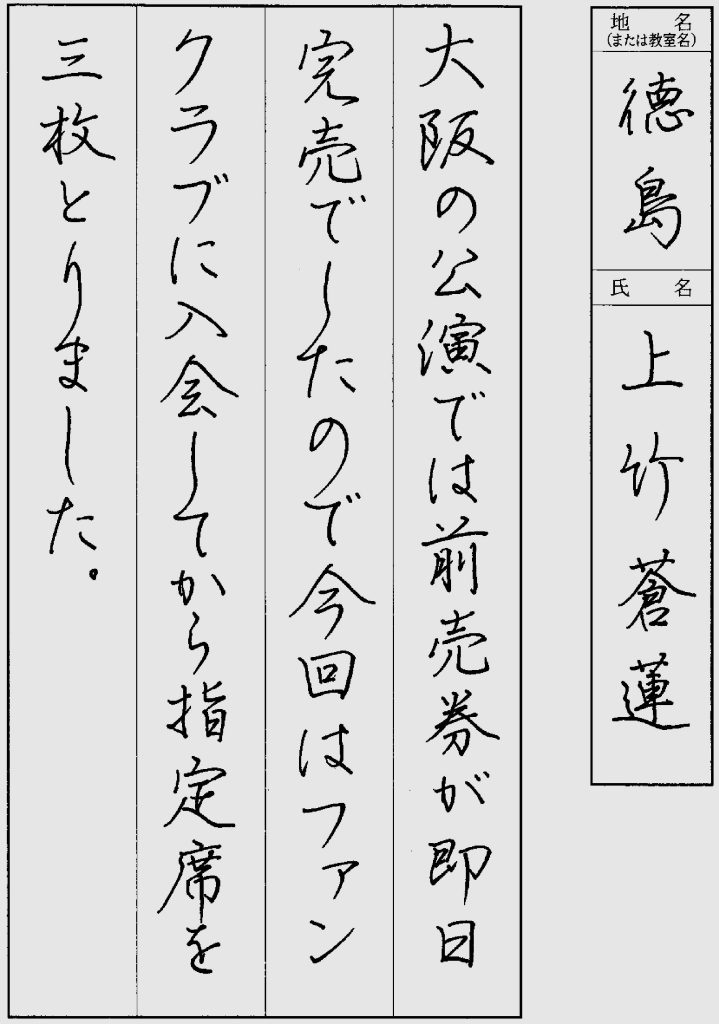 地名
(または教室名)
徳島
氏名
上竹蒼蓮
大阪の公演では前売券が即日
完売でしたので今回はファン
クラブに入会してから指定席を
三枚とりました。